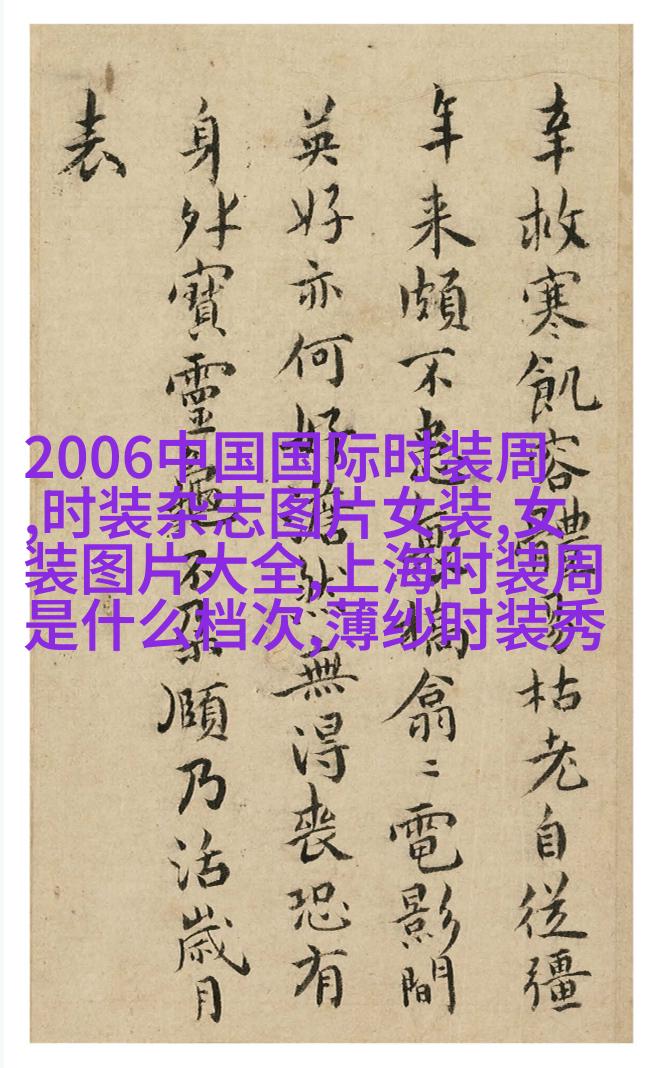 幸救寒飢容體枯老自從彊
年来頗不翕〻電影間
英好亦何好澹然無得喪恐有
身外寶靈龜不朶頤乃活歲月
表
2006中国国际时装周
,时装杂志图片女装,女
装图片大全,上海时装周
是什么档次,薄纱时装秀